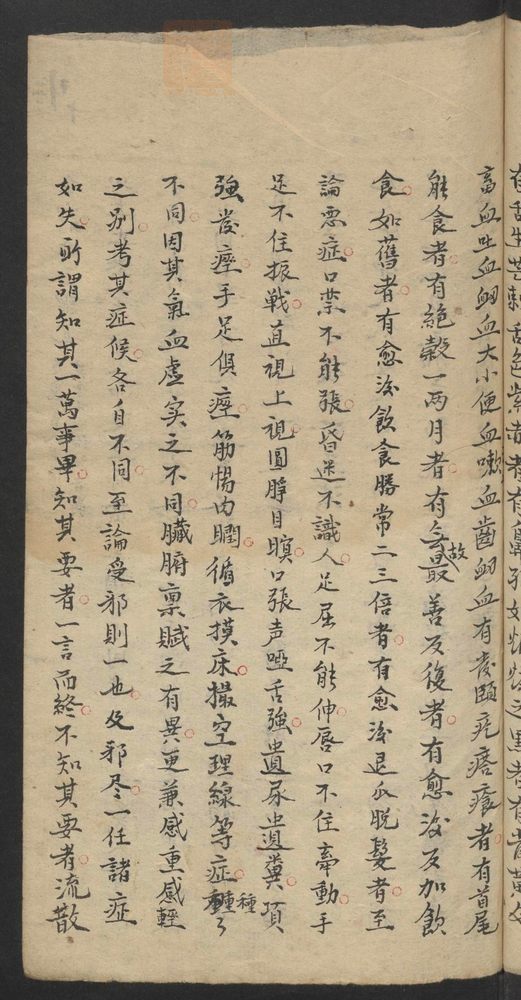 有舌生芒刺舌色紫者有鼻孔如烟煤之黑者有
畜血吐血衄血大小便血嗽血齒衄血有發頤疙瘩瘡者有首尾
能食者有絕穀一兩月者有無故最善反復者有愈後反加飲
食如舊者有愈後飲食勝常二三倍者有愈後退爪脫髮者至
論惡症口禁不能張昏迷不識人足屈不能伸唇口不住牽動手
足不住振戰直視上視圓睜目瞑口張声啞舌強遺尿遺糞項
強發痙手足俱痙筋惕肉瞤循衣摸床撮空理線等症種種
不同因其氣血虛实之不同臟腑禀賦之有異更兼感重感輕
之别考其症候各自不同至論受邪則一也及邪尽一任諸症
如失所謂知其一萬事畢知其要者一言而終不知其要者流散